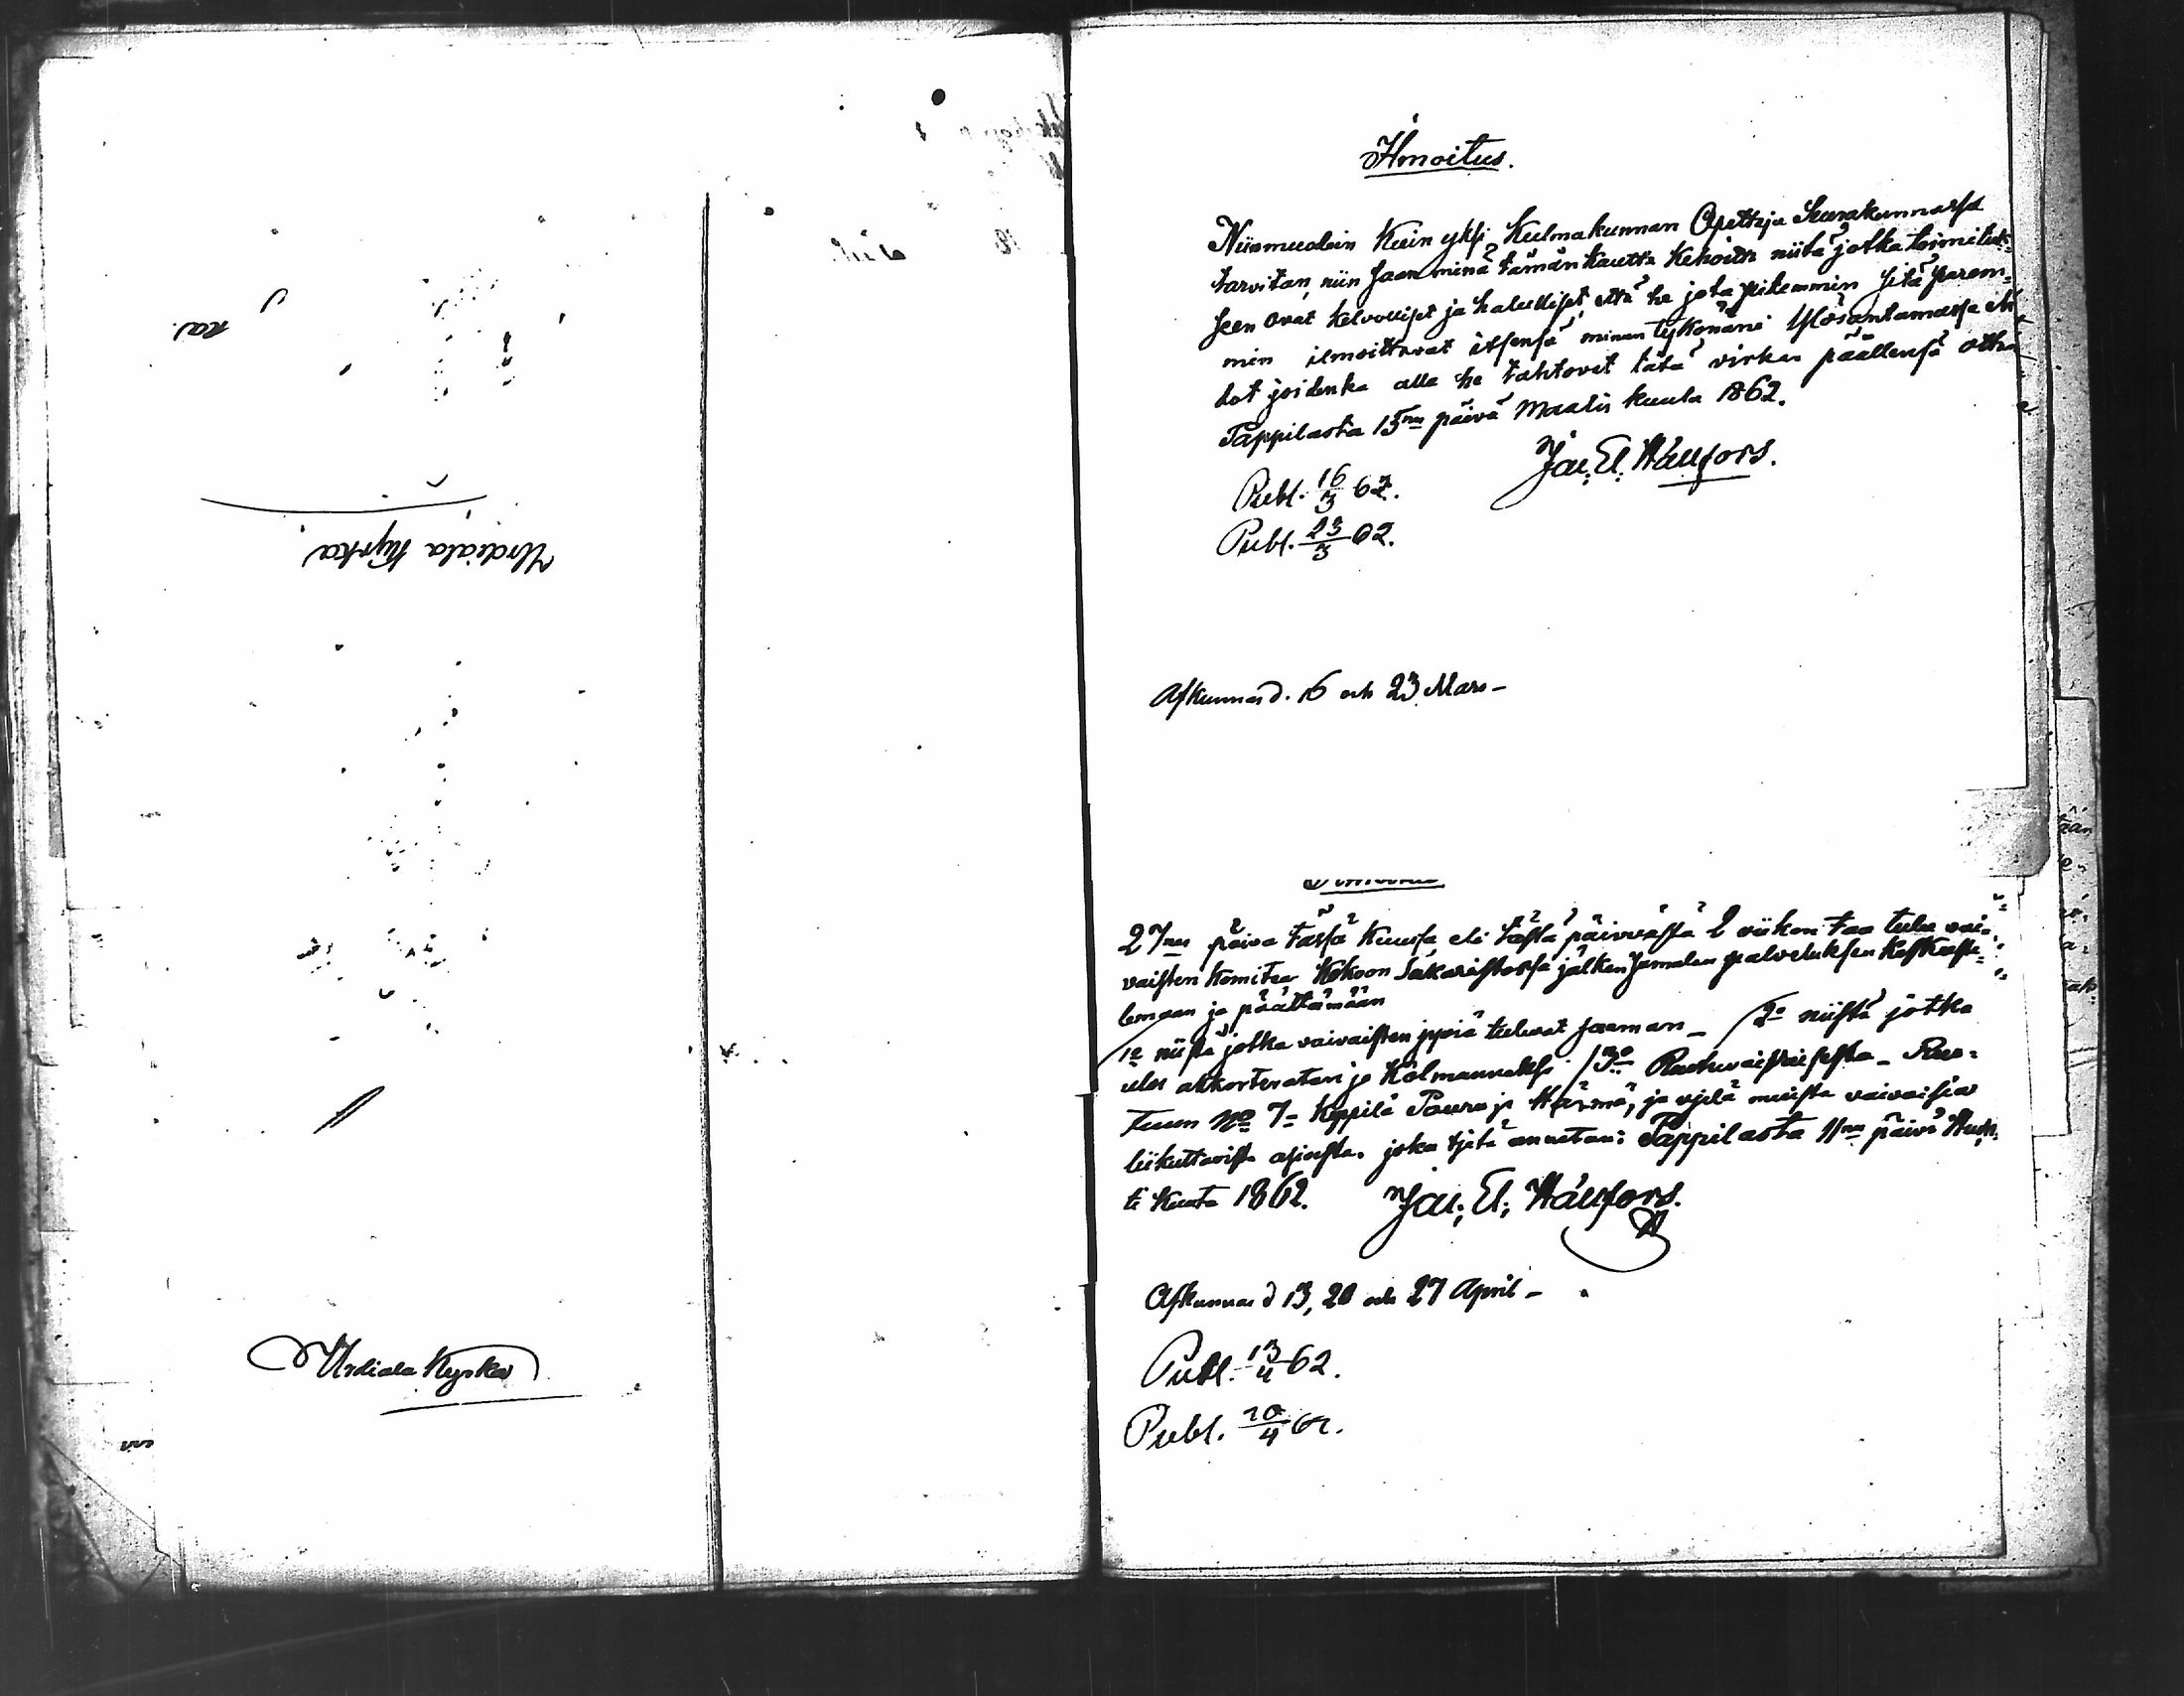 Urdiala Kyrka
Urdiala Kyrka
Ilmoitus.
Niinmuodoin kuin yksi Kulmakunnan Opettaja Seurakunnassa
tarvitan, niin saan minä tämän kautta kehoitta niitä jotka toimituk-
seen ovat kelvolliset ja halulliset, että he jota pikemmin sitä parem-
min ilmoittavat itsensä minun tykönäni Ylösantamassa eh-
dot joidenka alla he tahtovat tätä virkaa päällensä otta
Pappilasta 15na päivä Maalis kuuta 1862.
Jac. El. Hällfors.
Publ. 16/3 62.
Publ. 23/3 62.
Afkunnas d. 16 och 23 Mars –
27nä päivä tässä kuussa eli tästä päivästä 2 viikon taa tulee vai-
vaisten komitea kokoon Sakaristossa jälken Jumalan palveluksen keskuste-
lemaan ja päättämään
1o niistä jotka vaivaisten apua tulevat saaman – 2o niistä jotka
ulos akkorteratan ja kolmanneksi 3o Ruotuvaivaisesta – Ruo-
tuun No 7 – Keppilä Paura ja Härmä, ja vielä muista vaivaisia
liikuttavista asioista. joka tietä annetan: Pappilasta 11na päivä Huh-
ti kuuta 1862. Jac. El. Hällfors.
Afkunnas d 13, 20 och 27 April –
Publ. 13/4 62.
Publ. 20/4 62.